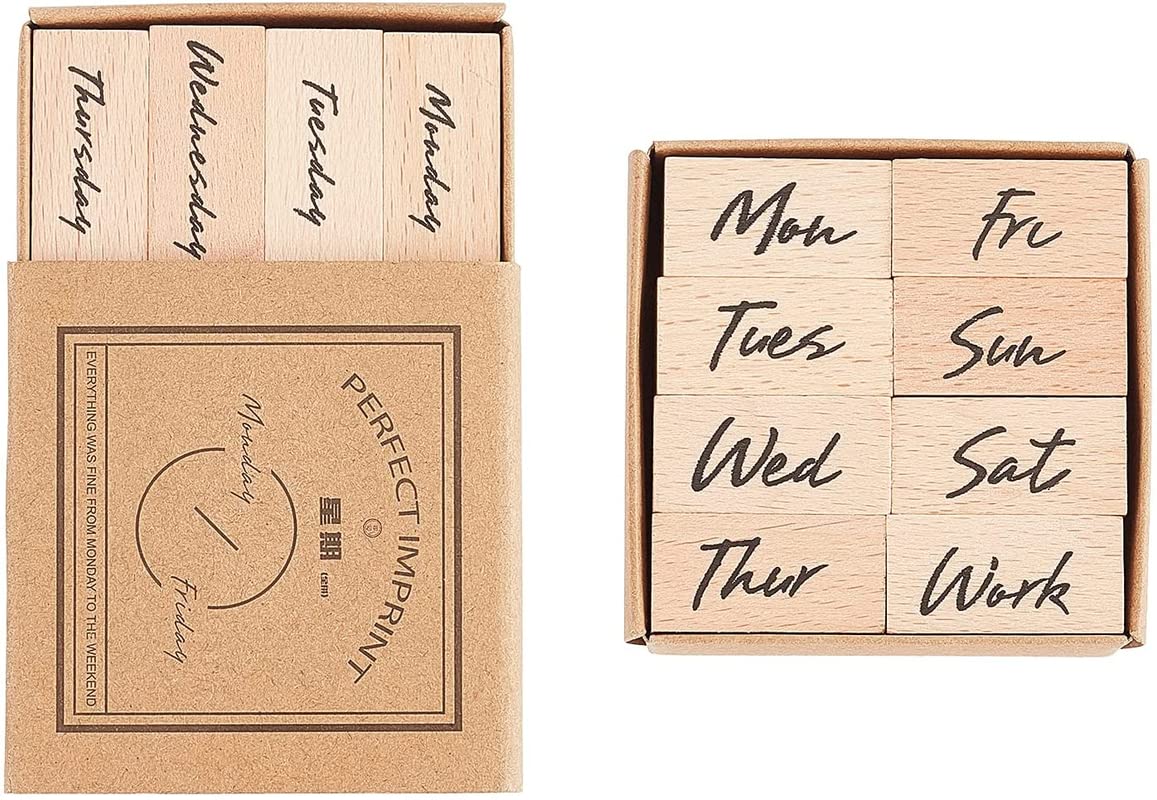 Monday
Tuesday
Wednesday
Thursday
PERFECT IMPRINT
星期
Monday
Friday
EVERYTHING WAS FINE FROM MONDAY TO THE WEEKEND
Mon
Fri
Tues
Sun
Wed
Sat
Thur
Work